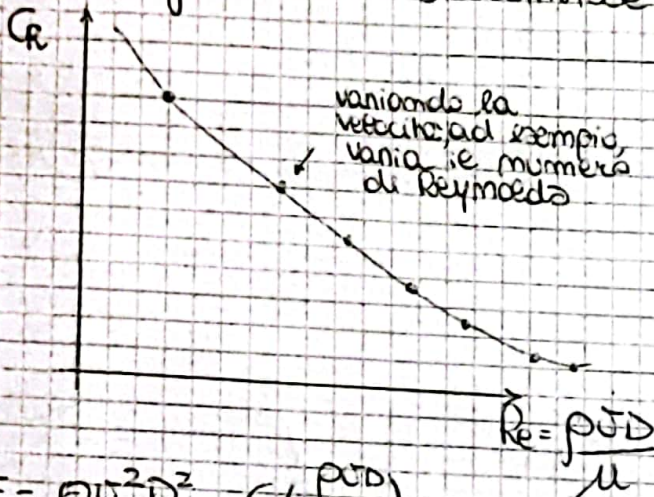 CR
variando la
velocità, ad esempio,
varia il numero
di Reynolds
Re = ρUD
μ
F = ρU²D² f(ρUD)